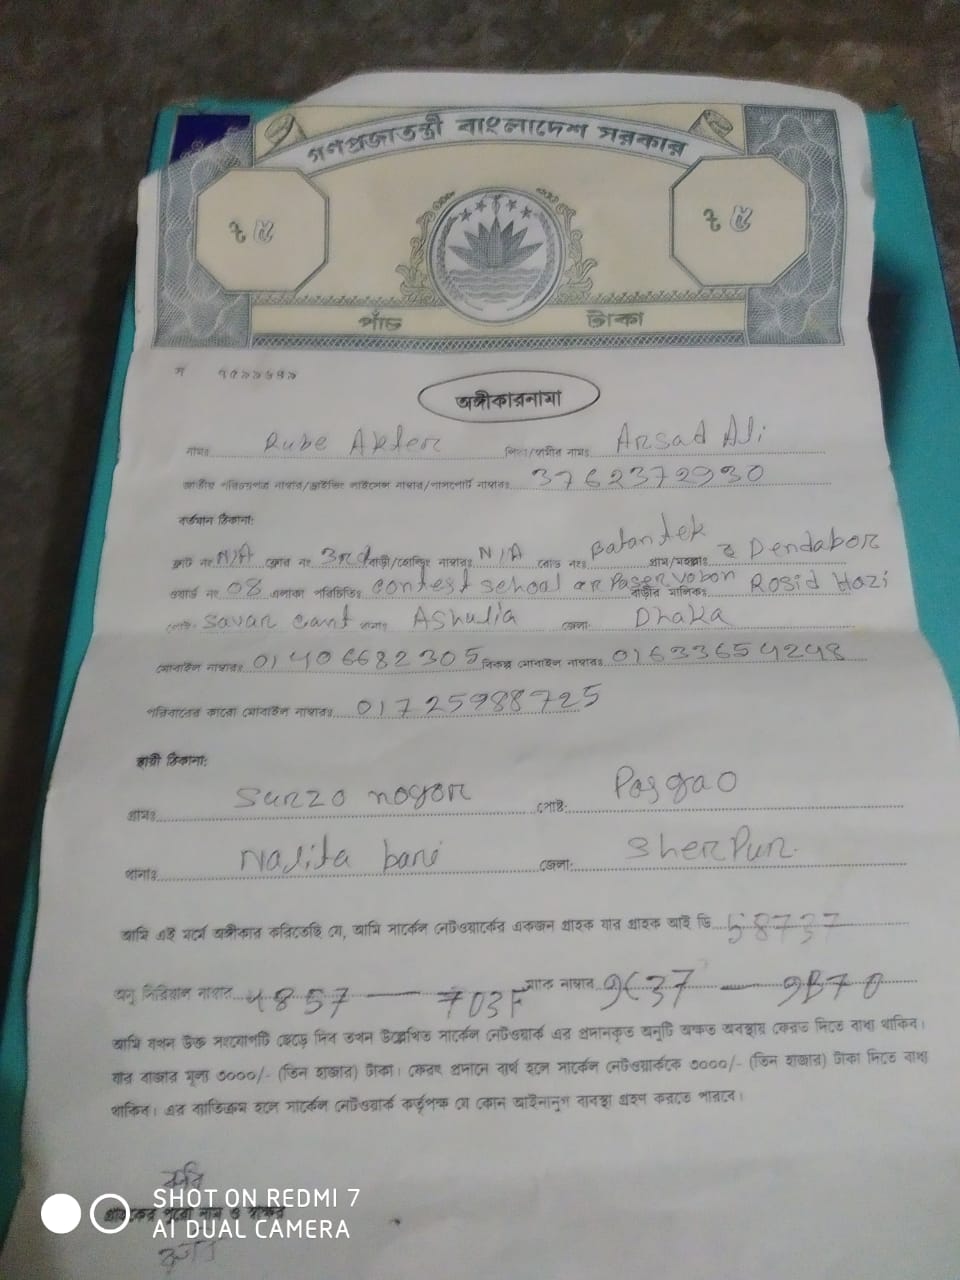 গণপ্রজাতন্ত্রী বাংলাদেশ সরকার
৳ ৫ ৳ ৫
পাঁচ টাকা
অঙ্গীকারনামা
নামঃ Rube Akter পিতা/স্বামীর নামঃ Arsad Ali
জাতীয় পরিচয়পত্র নাম্বার/ড্রাইভিং লাইসেন্স নাম্বার/পাসপোর্ট নাম্বারঃ 3762372930
বর্তমান ঠিকানা:
ফ্লাট নং N/A ফ্লোর নং 3rd বাড়ী/হোল্ডিং নাম্বারঃ N/A রোড নংঃ Batantek গ্রাম/মহল্লাঃ Dendabor
ওয়ার্ড নং 08 এলাকা পরিচিতিঃ contest school ar Paser vobon বাড়ীর মালিকঃ Rosid Hazi
পোষ্ট: Savar cant থানাঃ Ashulia জেলা: Dhaka
মোবাইল নাম্বারঃ 01406682305 বিকল্প মোবাইল নাম্বারঃ 01633654248
পরিবারের কারো মোবাইল নাম্বারঃ 01725988725
স্থায়ী ঠিকানা:
গ্রামঃ Surzo nogor পোষ্ট: Posgao
থানাঃ Nalita bari জেলা: SherPur.
আমি এই মর্মে অঙ্গীকার করিতেছি যে, আমি সার্কেল নেটওয়ার্কের একজন গ্রাহক যার গ্রাহক আই ডি 58737
অনু সিরিয়াল নাম্বার 4857 — 703F ম্যাক নাম্বার 9C37 — 9B70
আমি যখন উক্ত সংযোগটি ছেড়ে দিব তখন উল্লেখিত সার্কেল নেটওয়ার্ক এর প্রদানকৃত অনুটি অক্ষত অবস্থায় ফেরত দিতে বাধ্য থাকিব।
যার বাজার মূল্য ৩০০০/- (তিন হাজার) টাকা। ফেরৎ প্রদানে ব্যর্থ হলে সার্কেল নেটওয়ার্ককে ৩০০০/- (তিন হাজার) টাকা দিতে বাধ্য
থাকিব। এর ব্যতিক্রম হলে সার্কেল নেটওয়ার্ক কর্তৃপক্ষ যে কোন আইনানুগ ব্যবস্থা গ্রহণ করতে পারবে।
গ্রাহকের পুরো নাম ও স্বাক্ষর
SHOT ON REDMI 7
AI DUAL CAMERA